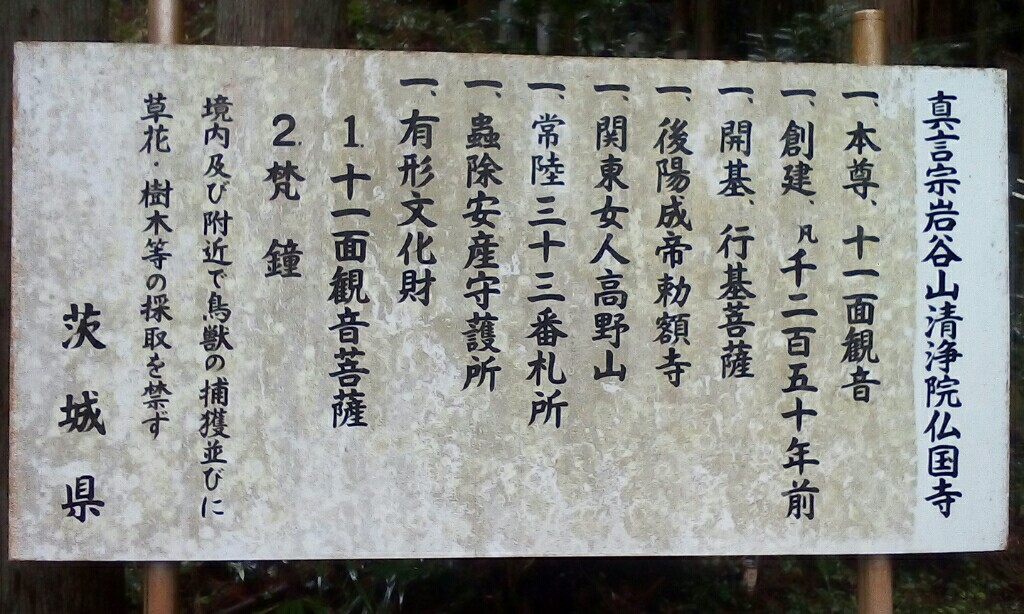 真言宗岩谷山清浄院仏国寺
一、本尊、十一面観音
一、創建、凡千二百五十年前
一、開基、行基菩薩
一、後陽成帝勅額寺
一、関東女人高野山
一、常陸三十三番札所
一、蟲除安産守護所
一、有形文化財
1.十一面観音菩薩
2.梵鐘
境内及び附近で鳥獣の捕獲並びに
草花・樹木等の採取を禁ず
茨城県